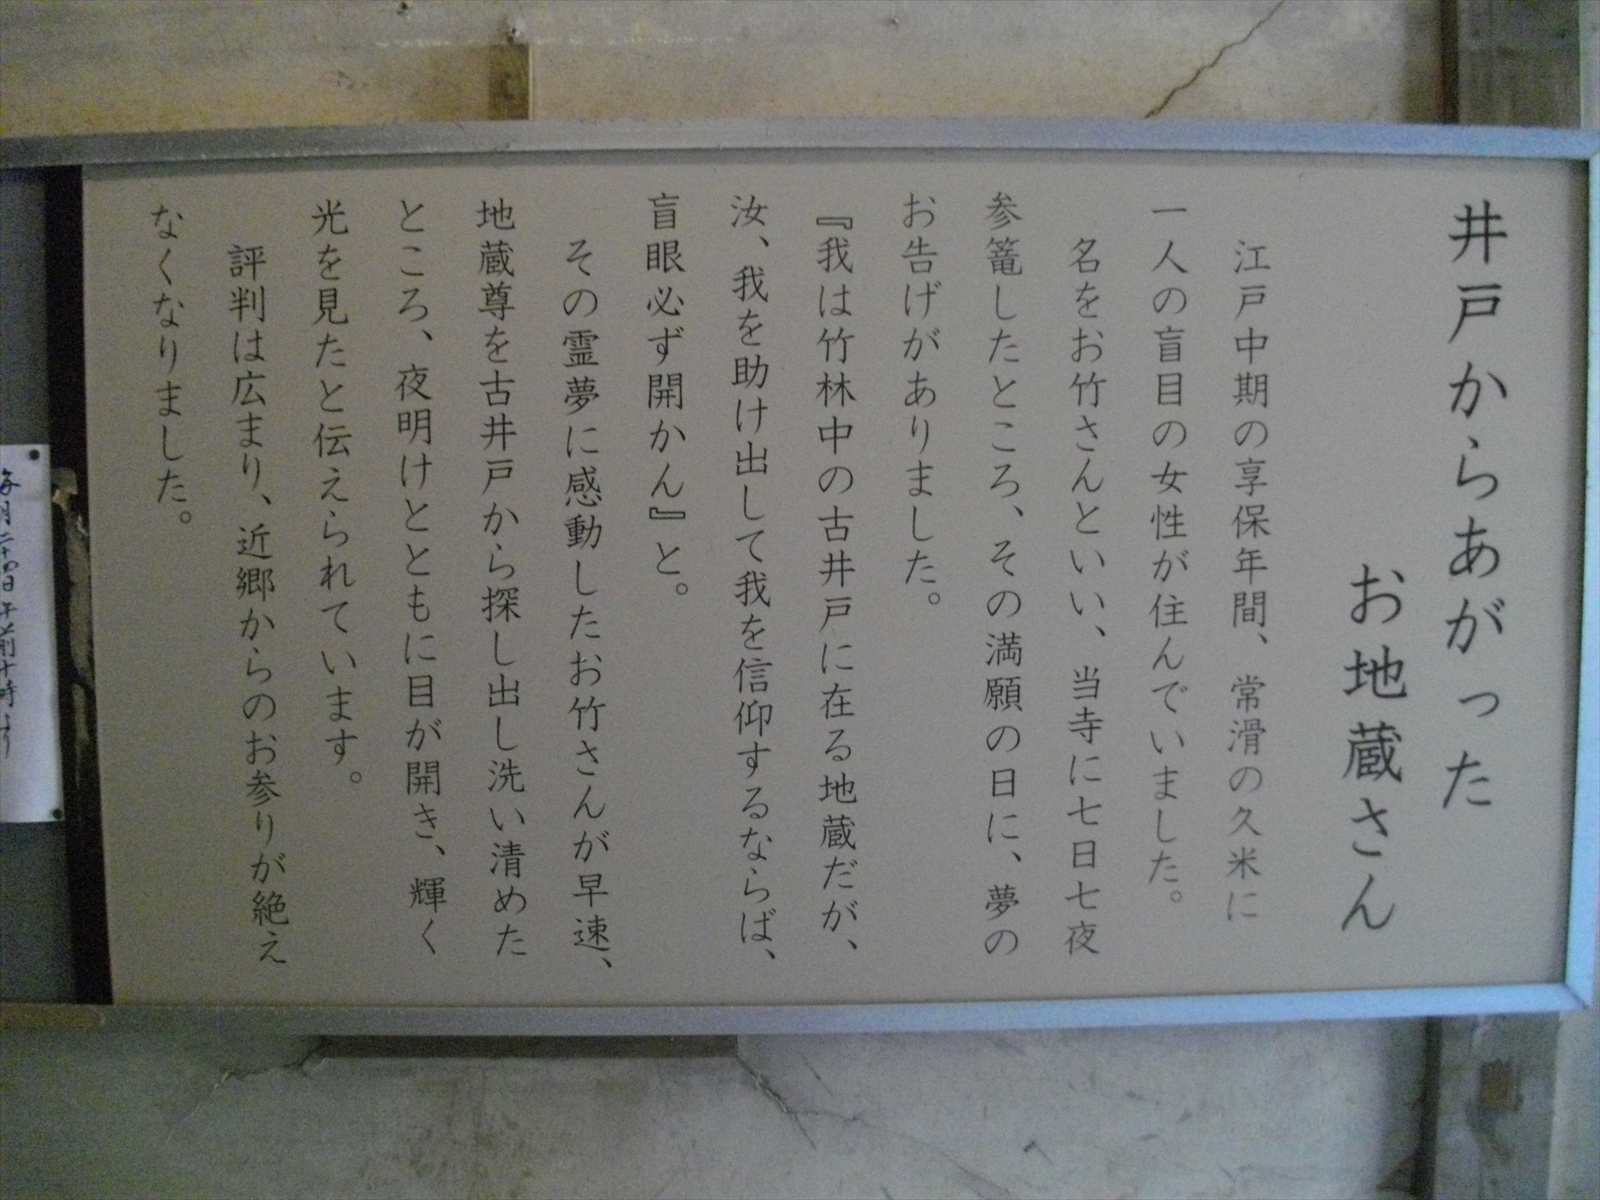 井戸からあがった
お地蔵さん
江戸中期の享保年間、常滑の久米に
一人の盲目の女性が住んでいました。
名をお竹さんといい、当寺に七日七夜
参篭したところ、その満願の日に、夢の
お告げがありました。
『我は竹林中の古井戸に在る地蔵だが、
汝、我を助け出して我を信仰するならば、
盲眼必ず開かん』と。
その霊夢に感動したお竹さんが早速、
地蔵尊を古井戸から探し出し洗い清めた
ところ、夜明けとともに目が開き、輝く
光を見たと伝えられています。
評判は広まり、近郷からのお参りが絶え
なくなりました。
毎月二十四日午前十時より